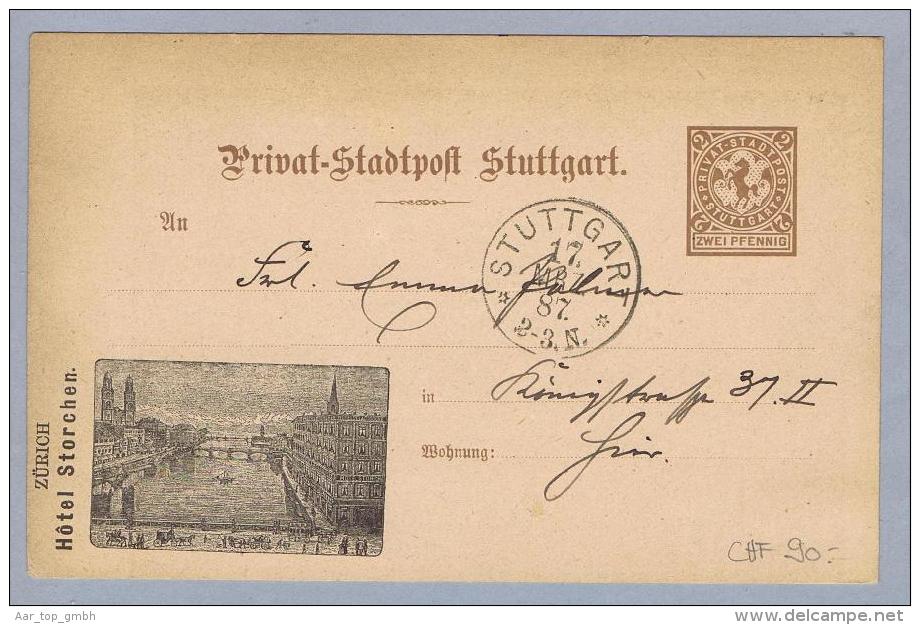 Privat-Stadtpost Stuttgart.
2 2
PRIVAT-STADTPOST
STUTTGART
2 2
ZWEI PFENNIG
An
STUTTGART
17.
MRZ
87.
2-3.N.
Frl. Emma
in Königstrasse 37. II
Wohnung: Hier.
ZÜRICH
Hôtel Storchen.
CHF 90.-
Aar_top_gmbh
www.delcampe.net